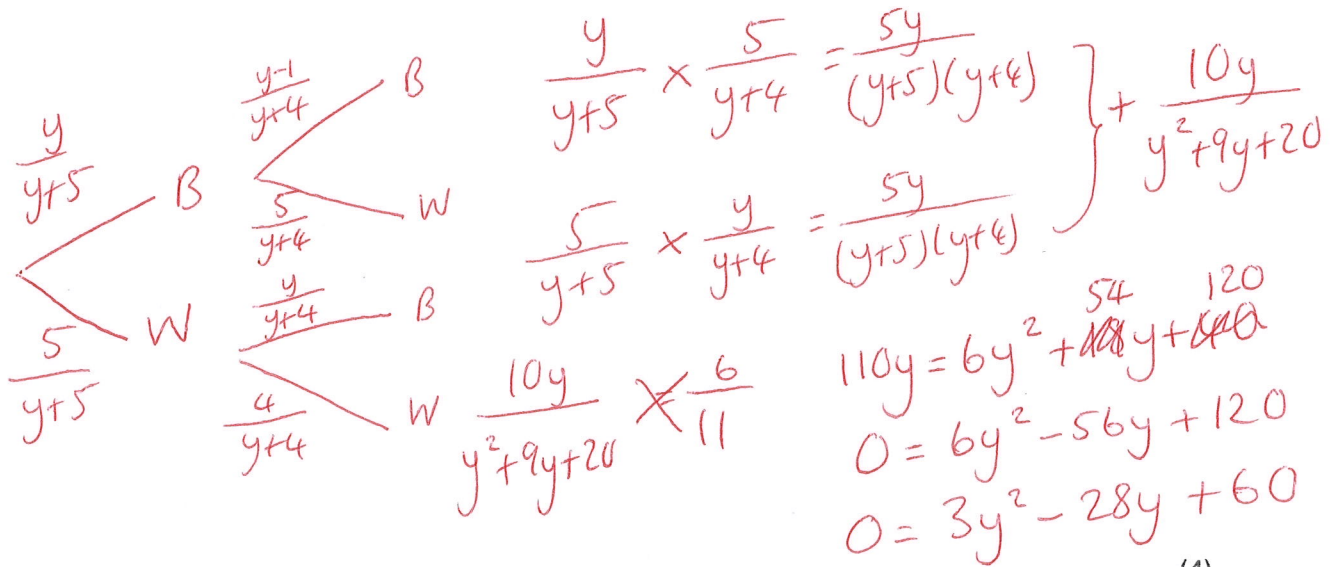 y/(y+5) B
5/(y+5) W
(y-1)/(y+4) B
5/(y+4) W
y/(y+4) B
4/(y+4) W
y/(y+5) × 5/(y+4) = 5y/((y+5)(y+4))
5/(y+5) × y/(y+4) = 5y/((y+5)(y+4))
} + 10y/(y²+9y+20)
10y/(y²+9y+20) = 6/11
110y = 6y² + 54y + 120
0 = 6y² - 56y + 120
0 = 3y² - 28y + 60